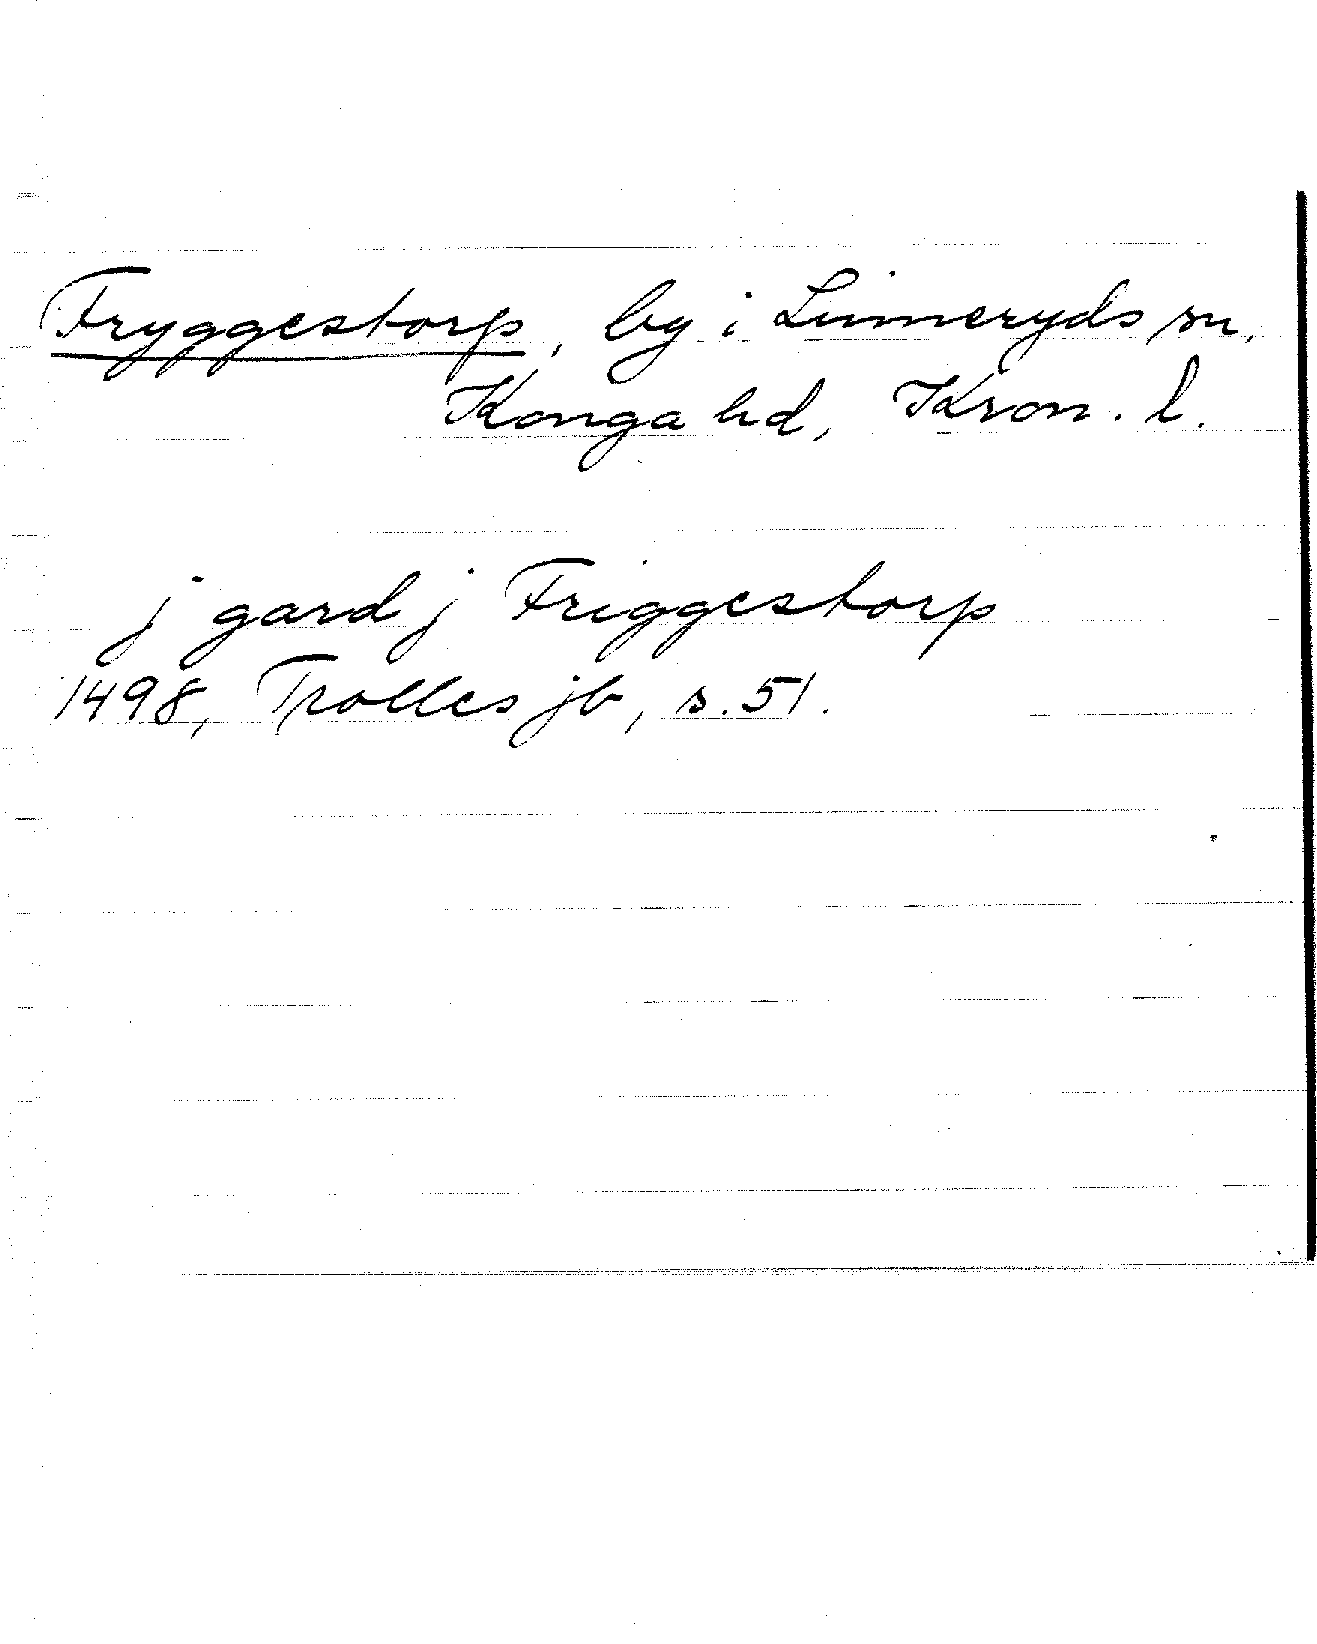 Fryggestorp, by i Linneryds sn,
Konga hd, Kron. l.
j gard j Friggestorp
1498, Trolles jb, s. 51.